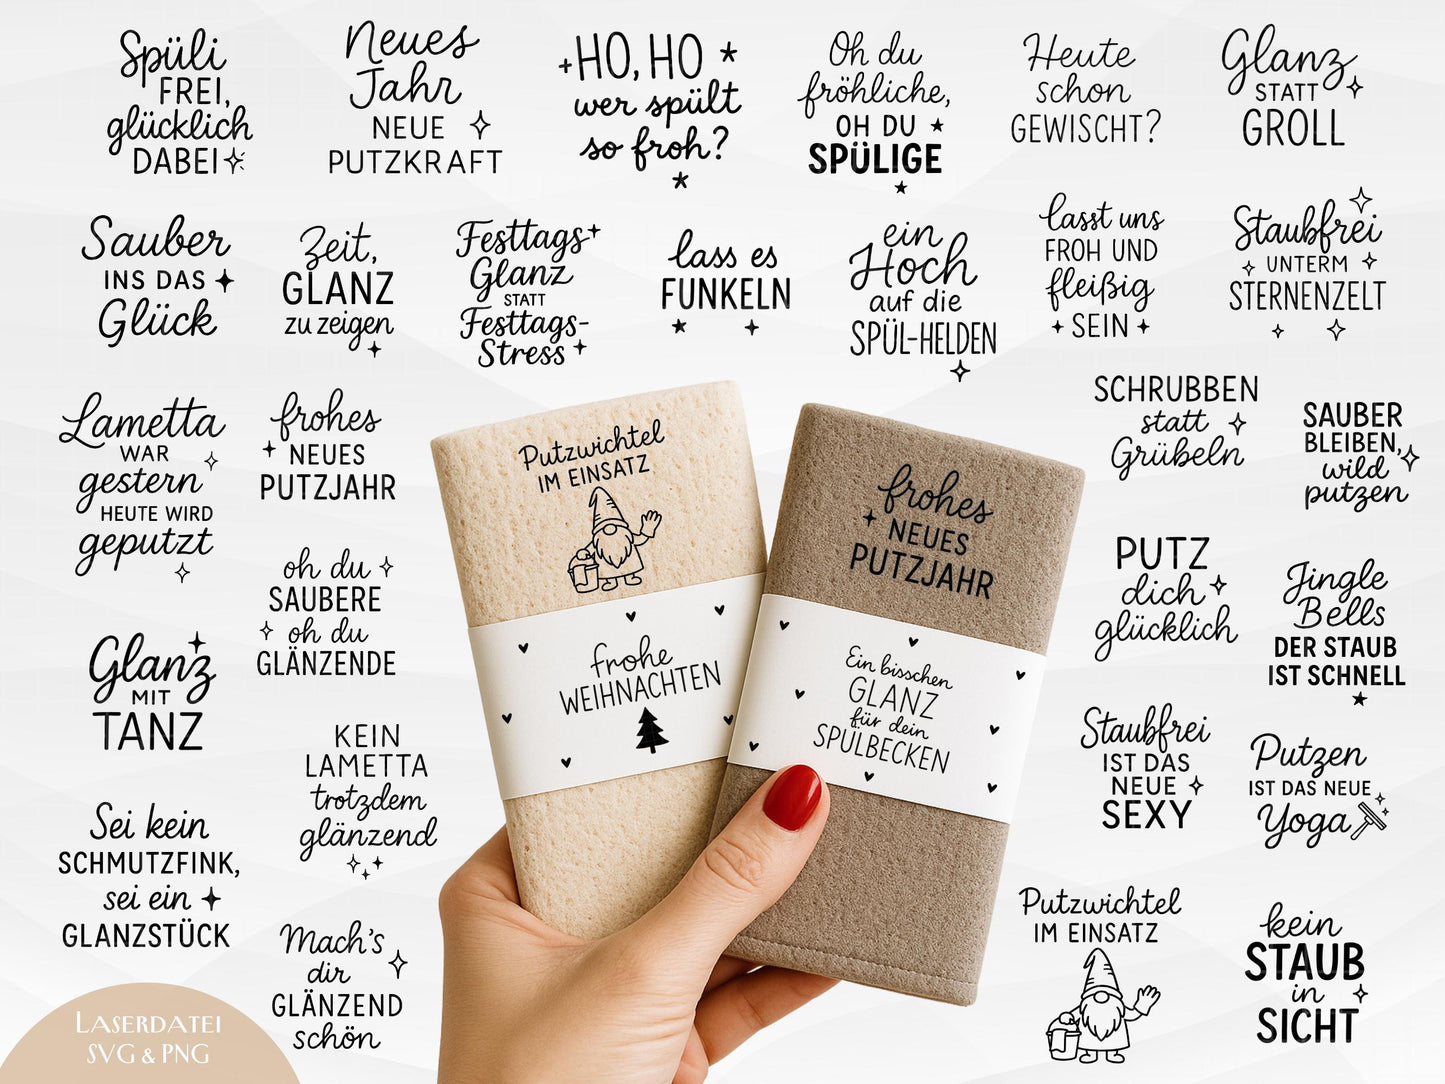 Spüli
FREI,
glücklich
DABEI
Neues
Jahr
NEUE
PUTZKRAFT
HO, HO
wer spült
so froh?
Oh du
fröhliche,
OH DU
SPÜLIGE
Heute
schon
GEWISCHT?
Glanz
STATT
GROLL
Sauber
INS DAS
Glück
Zeit,
GLANZ
zu zeigen
Festtags
Glanz
STATT
Festtags-
Stress
lass es
FUNKELN
ein
Hoch
auf die
SPÜL-HELDEN
lasst uns
FROH UND
fleißig
SEIN
Staubfrei
UNTERM
STERNENZELT
Lametta
WAR
gestern
HEUTE WIRD
geputzt
frohes
NEUES
PUTZJAHR
Putzwichtel
IM EINSATZ
frohe
WEIHNACHTEN
frohes
NEUES
PUTZJAHR
Ein bisschen
GLANZ
für dein
SPÜLBECKEN
SCHRUBBEN
statt
Grübeln
SAUBER
BLEIBEN,
wild
putzen
oh du
SAUBERE
oh du
GLÄNZENDE
PUTZ
dich
glücklich
Jingle
Bells
DER STAUB
IST SCHNELL
Glanz
MIT
TANZ
KEIN
LAMETTA
trotzdem
glänzend
Staubfrei
IST DAS
NEUE
SEXY
Putzen
IST DAS NEUE
Yoga
Sei kein
SCHMUTZFINK,
sei ein
GLANZSTÜCK
Mach's
dir
GLÄNZEND
schön
Putzwichtel
IM EINSATZ
kein
STAUB
in
SICHT
LASERDATEI
SVG & PNG